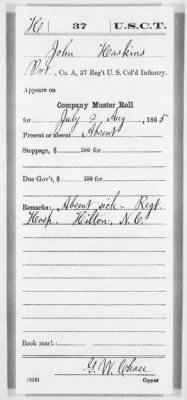 H 37 U.S.C.T.
John Haskins
Pvt, Co. A, 37 Reg't U. S. Col'd Infantry.
Appears on
Company Muster Roll
for July & Aug, 1865
Present or absent Absent
Stoppage, $ 100 for
Due Gov't, $ 100 for
Remarks: Absent sick - Regt.
Hosp. Hilton, N.C.
Book mark:
G. W. Chase
(858) Copyist